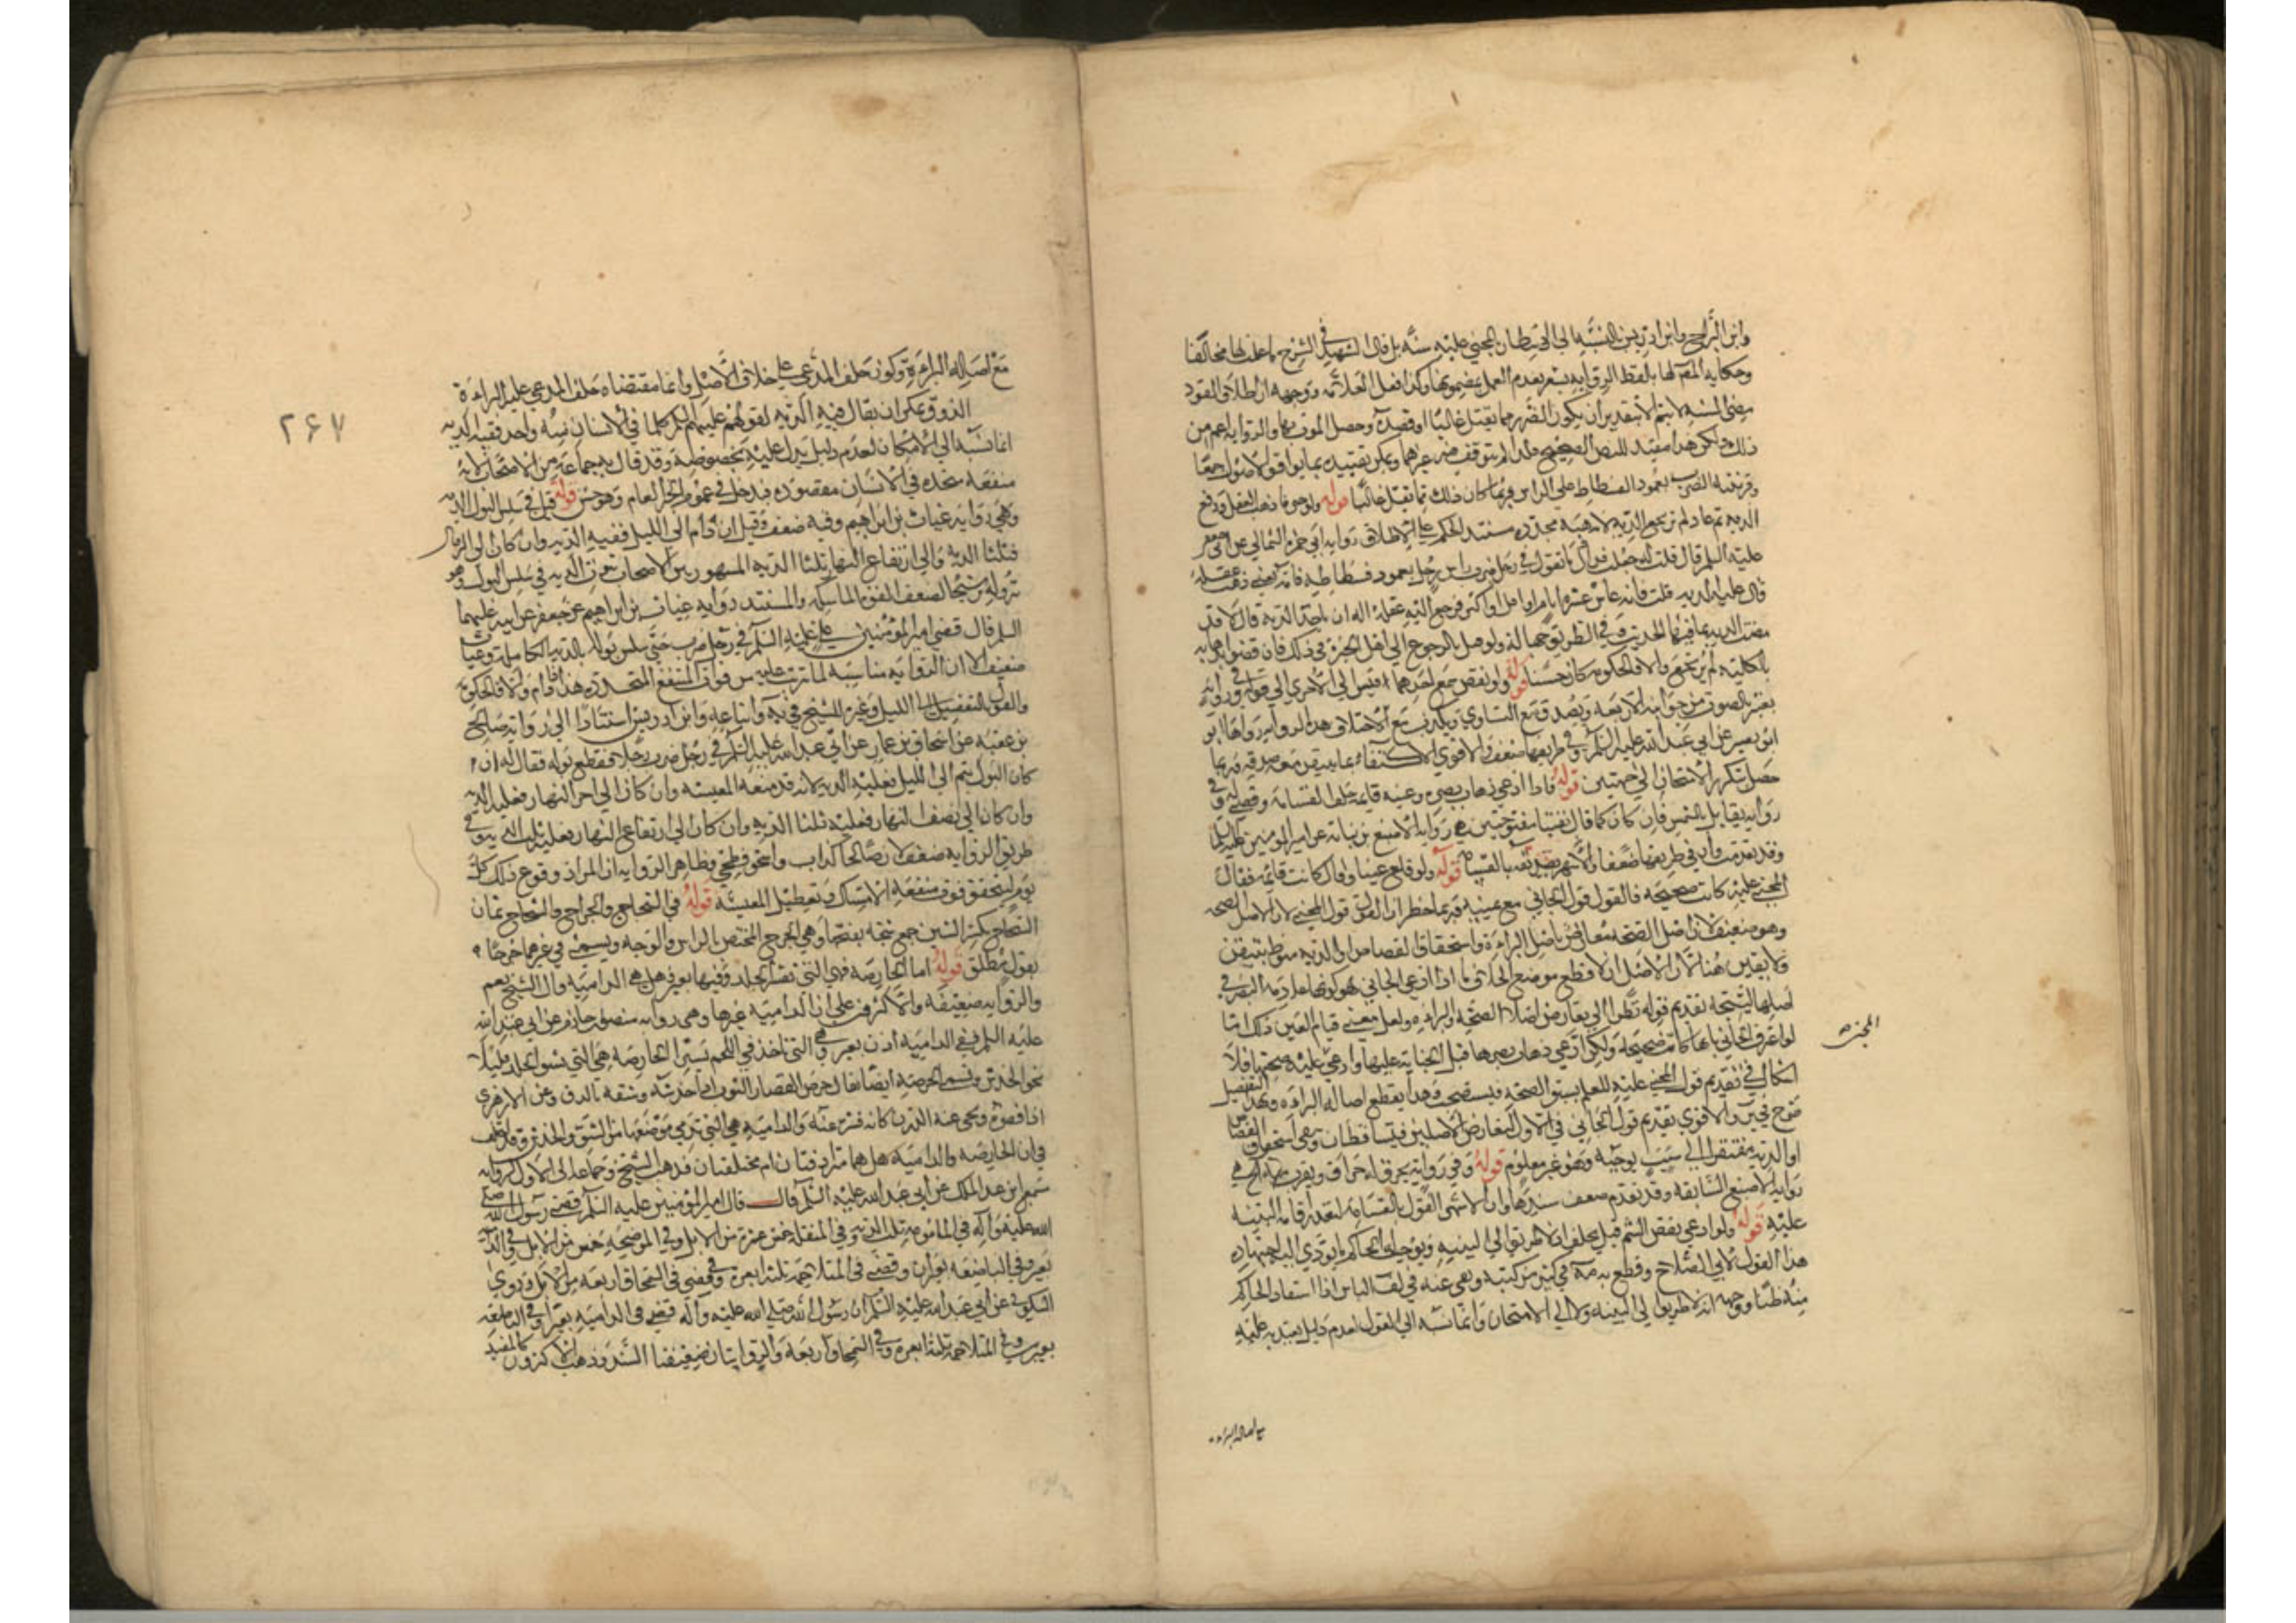 وابن البراج وابن ادريس بالنسبة الى المجني عليه سنة بل قال الشهيد في الشرح
وحكايه المص لها بلفظ الرواية يشعر بعدم العمل بمضمونها وكذا فعل العلامة ووجهه ان اطلاق القود
مضى السنة لا يتم الا بتقدير ان يكون الضرر مما يقتل غالبا او قصده وحصل الموت بها والرواية اعم من
ذلك ولكن هذا مفيد للنص الصحيح ويمكن تقييده بما يوافق الاصول جمعا
وقرينته الضرب بعمود الفسطاط على الراس فربما كان ذلك مما يقتل غالبا قوله ولو جنى فاذهب العقل ودفع
الدية ثم عاد لم يرتجع الدية لانه هبة مجددة مستند الحكم على الاطلاق رواية ابي حمزة الثمالي عن ابي جعفر
عليه السلم قال قلت له جعلت فداك ما تقول في رجل ضرب راس رجل بعمود فسطاط فامه يعني ذهب عقله
قال عليه الدية قلت فانه عاش عشرة ايام او اقل او اكثر فرجع اليه عقله اله ان ياخذ الدية قال لا قد
مضت الدية بما فيها الحديث وفي الطريق جهالة ولو قيل بالرجوع الى اهل الخبرة في ذلك فان قضوا بذهابه
بالكلية لم يرتجع والا فالحكومة كان حسنا قوله ولو نقص سمع احدهما قيس الى الاخرى الى قوله وفي رواية
يعتبر بالصوت من جوانبه الاربعة ويصدق مع التساوي ويكذب مع الاختلاف هذه الرواية رواها
ابو بصير عن ابي عبد الله عليه السلم وفي طريقها ضعف والاقوى الاكتفاء بما يتيقن معه صدقه وربما
حصل بتكرر الامتحان الى جهتين قوله فاذا ادعى ذهاب بصره وعينه قائمة حلف القسامة وقضى له وفي
رواية يقابل بالشمس فان كان كما قال بقيتا مفتوحتين هي رواية الاصبغ بن نباتة عن امير المؤمنين عليه السلم
وقد تقدمت وان في طريقها ضعفا والاشهر تصديقه بالقسامة قوله ولو قلع عينا وقال كانت قائمة فقال
المجني عليه كانت صحيحة فالقول قول الجاني مع يمينه وربما خطر ان القول قول المجني لان الاصل الصحة
وهو ضعيف لان اصل الصحة معارض باصل البراءة واستحقاق القصاص او الدية منوط بتيقن
ولا يقين هنا لان الاصل ان لا قطع موضع الخلاف ما اذا ادعى الجاني كونها عادمة البصر في
اصلها ليتجه تقديم قوله نظرا الى تعارض اصلي الصحة والبراءة ولعل معنى قيام العين ذلك اما
لو اعترف الجاني بانها كانت صحيحة ولكن ادعى ذهاب بصرها قبل الجناية عليها وادعى المجني عليه صحتها فلا
اشكال في تقديم قول المجني عليه للعلم بسبق الصحة فيستصحب وهذا يقطع اصالة البراءة وبهذا التفصيل
صرح في ير والاقوى تقديم قول الجاني في الاول لتعارض الاصلين فيتساقطان ويبقى استحقاق القصاص
او الدية مفتقرا الى سبب يوجبه وهو غير معلوم قوله وفي رواية يحرق له حراق ويقرب منه هي
رواية الاصبغ السابقة وقد تقدم ضعف سندها وان الاشهر القول بالقسامة لتعذر اقامة البينة
عليه قوله ولو ادعى نقص الشم قيل يحلف اذ لا طريق الى البينة ويوجب له الحاكم ما يؤدي اليه اجتهاده
هذا القول لابي الصلاح وقطع به مة في كثير من كتبه ونفى عنه في لف الباس اذا استفاد الحاكم
منه ظنا ووجهه انه لا طريق الى البينة ولا الى الامتحان وانما نسبه الى القول لعدم دليل يعتد به عليه
المجني
مع اصالة البراءة
٢٦٧
مع اصالة البراءة وكون حلف المدعي على خلاف الاصل وانما مقتضاه حلف المدعى عليه البراءة
الذوق ويمكن ان يقال فيه الدية لقولهم عليهم السلم كلما في الانسان منه واحد ففيه الدية
انما نسبه الى الامكان لعدم دليل يدل عليه بخصوصه وقد قال به جماعة من الاصحاب لانه
منفعة متحدة في الانسان مقصودة فيدخل في عموم الخبر العام وهو حسن قوله قيل في سلس البول الدية
وهي رواية غياث بن ابراهيم وفيه ضعف وقيل ان دام الى الليل ففيه الدية وان كان الى الزوال
فثلثا الدية والى ارتفاع النهار ثلث الدية المشهور بين الاصحاب ثبوت الدية في سلس البول وهو
نزوله ترشحا لضعف القوة الماسكة والمستند رواية غياث بن ابراهيم عن جعفر عن ابيه عليهما
السلم قال قضى امير المؤمنين علي عليه السلم في رجل ضرب حتى سلس بوله بالدية الكاملة وغياث
ضعيف الا ان الرواية مناسبة لما ترتب عليه من فوات المنفعة المتحدة هذا اذا دام والا فالحكومة
والقول بالتفصيل الى الليل وغيره للشيخ في ية واتباعه وابن ادريس استنادا الى رواية صالح
بن عقبة عن اسحاق بن عمار عن ابي عبد الله عليه السلم في رجل ضرب رجلا فقطع بوله فقال له ان
كان البول يتم الى الليل فعليه الدية لانه قد منعه المعيشة وان كان الى اخر النهار فعليه الدية
وان كان الى نصف النهار فعليه ثلثا الدية وان كان الى ارتفاع النهار فعليه ثلث الدية وفي
طريق الرواية ضعف لان صالحا كذاب واسحق فطحي وظاهر الرواية ان المراد وقوع ذلك كل
يوم ليتحقق فوت منفعة الامساك وتعطيل المعيشة قوله في الشجاج والجراح والشجاج ثمان
الشجاج بكسر الشين جمع شجة بفتحها وهي الجرح المختص بالراس والوجه ويسمى في غيرهما جرحا
بقول مطلق قوله اما الحارصة فهي التي تقشر الجلد وفيها بعير وهل هي الدامية قال الشيخ نعم
والرواية ضعيفة والاكثرون على ان الدامية غيرها وهي رواية منصور بن حازم عن ابي عبد الله
عليه السلم ففي الدامية اذن بعيران وهي التي تاخذ في اللحم يسيرا الحارصة هي التي تشق الجلد قليلا
نحو الخدش وتسمى الحرصة ايضا يقال حرص القصار الثوب اي خدشه وشقه بالدق وعن الازهري
اذا قصره ونحى عنه الدرن كانه قشره عنه والدامية هي التي تدمي موضعها من الشق والخدش وقد اختلف
في ان الحارصة والدامية هل هما مترادفتان ام مختلفتان فذهب الشيخ وجماعة الى الاول لرواية
مسمع ابن عبد الملك عن ابي عبد الله عليه السلم قال قال امير المؤمنين عليه السلم قضى رسول الله صلى
الله عليه وآله في المامومة ثلث الدية وفي المنقلة خمس عشرة من الابل وفي الموضحة خمس من الابل وفي الدامية
بعير وفي الباضعة بعيران وقضى في المتلاحمة ثلثة ابعرة وقضى في السمحاق اربعة من الابل وروى
السكوني عن ابي عبد الله عليه السلم ان رسول الله صلى الله عليه وآله قضى في الدامية بعيرا وفي الباضعة
بعيرين وفي المتلاحمة ثلثة ابعرة وفي السمحاق اربعة والروايتان ضعيفتا السند وذهب الاكثرون كالمفيد